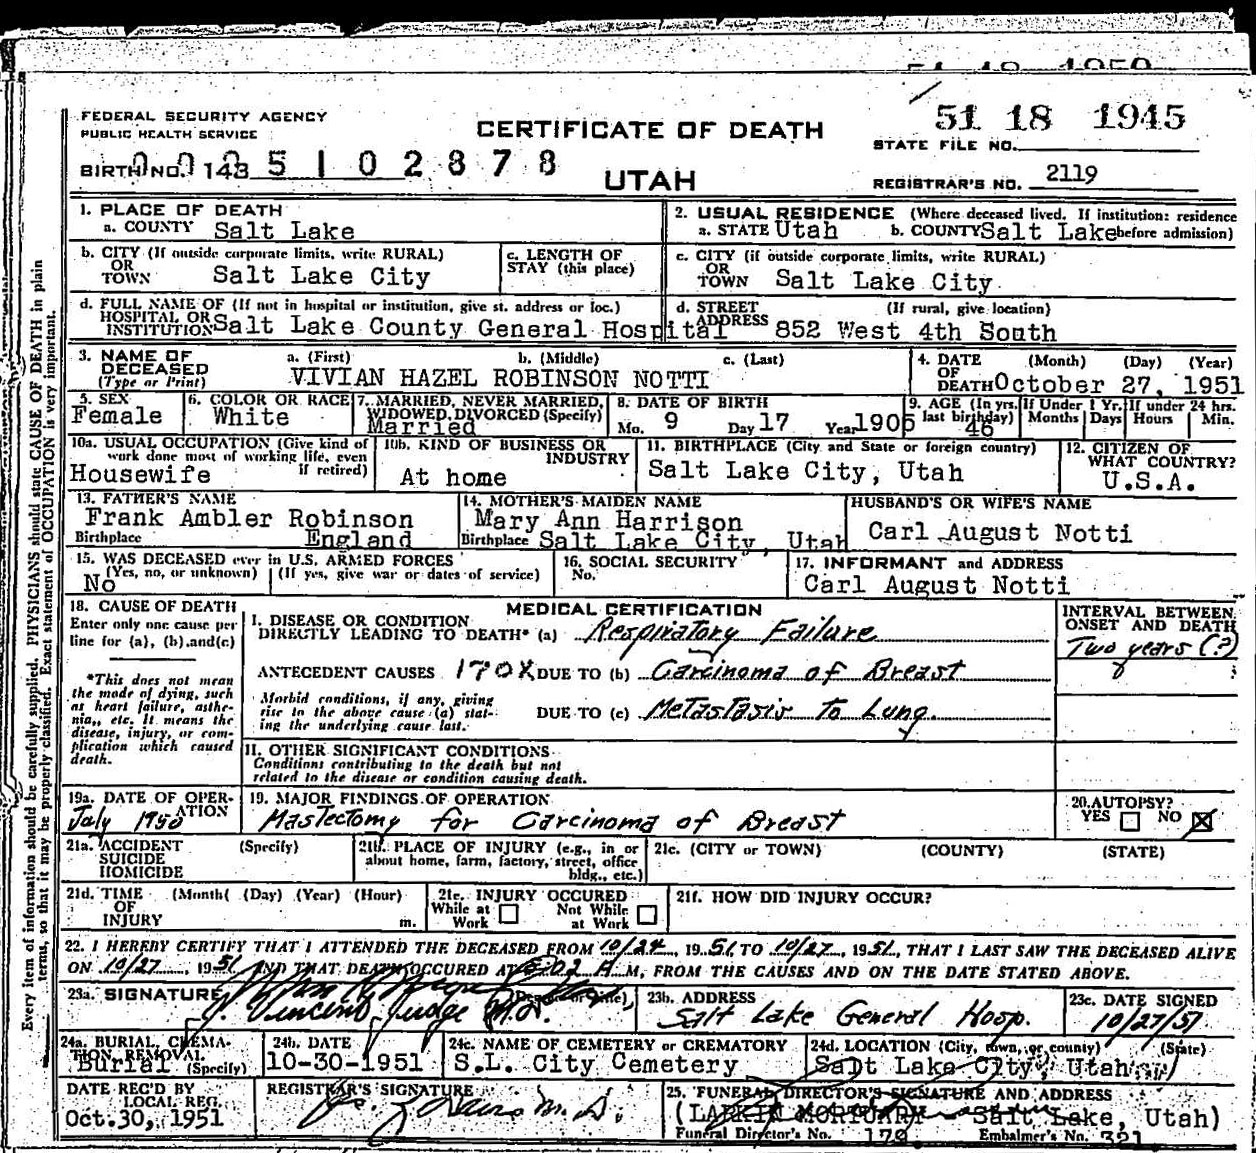 51 18 1950
FEDERAL SECURITY AGENCY
PUBLIC HEALTH SERVICE
CERTIFICATE OF DEATH
51 18 1945
STATE FILE NO.
BIRTH NO. 143 5 1 0 2 8 7 8
UTAH
REGISTRAR'S NO. 2119
1. PLACE OF DEATH
a. COUNTY Salt Lake
2. USUAL RESIDENCE (Where deceased lived. If institution: residence before admission)
a. STATE Utah b. COUNTY Salt Lake
b. CITY (If outside corporate limits, write RURAL) OR TOWN Salt Lake City
c. LENGTH OF STAY (this place)
c. CITY (if outside corporate limits, write RURAL) OR TOWN Salt Lake City
d. FULL NAME OF (If not in hospital or institution, give st. address or loc.) HOSPITAL OR INSTITUTION Salt Lake County General Hospital
d. STREET ADDRESS (If rural, give location) 852 West 4th South
3. NAME OF DECEASED (Type or Print) a. (First) b. (Middle) c. (Last)
VIVIAN HAZEL ROBINSON NOTTI
4. DATE OF DEATH (Month) (Day) (Year) October 27, 1951
5. SEX Female
6. COLOR OR RACE White
7. MARRIED, NEVER MARRIED, WIDOWED, DIVORCED (Specify) Married
8. DATE OF BIRTH Mo. 9 Day 17 Year 1905
9. AGE (In yrs. last birthday) 46
If Under 1 Yr. Months Days
If under 24 hrs. Hours Min.
10a. USUAL OCCUPATION (Give kind of work done most of working life, even if retired) Housewife
10b. KIND OF BUSINESS OR INDUSTRY At home
11. BIRTHPLACE (City and State or foreign country) Salt Lake City, Utah
12. CITIZEN OF WHAT COUNTRY? U.S.A.
13. FATHER'S NAME Frank Ambler Robinson
Birthplace England
14. MOTHER'S MAIDEN NAME Mary Ann Harrison
Birthplace Salt Lake City, Utah
HUSBAND'S OR WIFE'S NAME Carl August Notti
15. WAS DECEASED ever in U.S. ARMED FORCES
(Yes, no, or unknown) No (If yes, give war or dates of service)
16. SOCIAL SECURITY No.
17. INFORMANT and ADDRESS Carl August Notti
18. CAUSE OF DEATH
Enter only one cause per line for (a), (b), and (c)
*This does not mean the mode of dying, such as heart failure, asthenia, etc. It means the disease, injury, or complication which caused death.
MEDICAL CERTIFICATION
INTERVAL BETWEEN ONSET AND DEATH
I. DISEASE OR CONDITION DIRECTLY LEADING TO DEATH* (a) Respiratory Failure
Two years (?)
ANTECEDENT CAUSES 170X DUE TO (b) Carcinoma of Breast
Morbid conditions, if any, giving rise to the above cause (a) stating the underlying cause last.
DUE TO (c) Metastasis to Lung.
II. OTHER SIGNIFICANT CONDITIONS
Conditions contributing to the death but not related to the disease or condition causing death.
19a. DATE OF OPERATION July 1950
19. MAJOR FINDINGS OF OPERATION Mastectomy for Carcinoma of Breast
20. AUTOPSY? YES NO X
21a. ACCIDENT SUICIDE HOMICIDE (Specify)
21b. PLACE OF INJURY (e.g., in or about home, farm, factory, street, office bldg., etc.)
21c. (CITY or TOWN) (COUNTY) (STATE)
21d. TIME OF INJURY (Month) (Day) (Year) (Hour) m.
21e. INJURY OCCURED While at Work Not While at Work
21f. HOW DID INJURY OCCUR?
22. I HEREBY CERTIFY THAT I ATTENDED THE DECEASED FROM 10/24, 1951 TO 10/27, 1951, THAT I LAST SAW THE DECEASED ALIVE
ON 10/27, 1951 AND THAT DEATH OCCURED AT 5:02 A M, FROM THE CAUSES AND ON THE DATE STATED ABOVE.
23a. SIGNATURE (Degree or title)
J. Vincent Judge M.D.
23b. ADDRESS Salt Lake General Hosp.
23c. DATE SIGNED 10/27/51
24a. BURIAL, CREMATION, REMOVAL (Specify) Burial
24b. DATE 10-30-1951
24c. NAME OF CEMETERY or CREMATORY S.L. City Cemetery
24d. LOCATION (City, town, or county) (State) Salt Lake City, Utah
DATE REC'D BY LOCAL REG. Oct. 30, 1951
REGISTRAR'S SIGNATURE M.D.
25. FUNERAL DIRECTOR'S SIGNATURE AND ADDRESS
(LARKIN MORTUARY Salt Lake, Utah)
Funeral Director's No. 179 Embalmer's No. 321
Every item of information should be carefully supplied. PHYSICIANS should state CAUSE OF DEATH in plain
terms, so that it may be properly classified. Exact statement of OCCUPATION is very important.